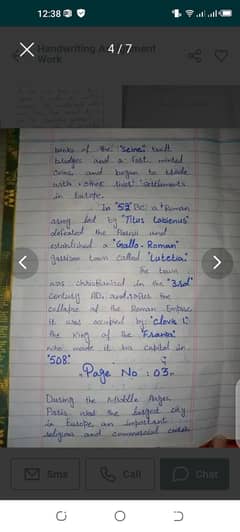 12:38
Handwriting A    ment
Work
4 / 7
banks of the "Seine" built
bridges and a fort, minted
coins, and began to trade
with other river settlements
in Europe.
In "52" BC, a Roman
army led by "Titus Labienus"
defeated the Parisii and
established a "Gallo-Roman"
garrison town called "Lutetia."
The town
was christianised in the "3rd"
Century AD, and after the
collapse of the Roman Empire
it was occupied by "Clovis I"
the King of the "Franks"
who made it his capital in
"508."
"Page No : 03"
During the Middle Ages,
Paris was the largest city
in Europe, an important
religious and commercial
Sms
Call
Chat